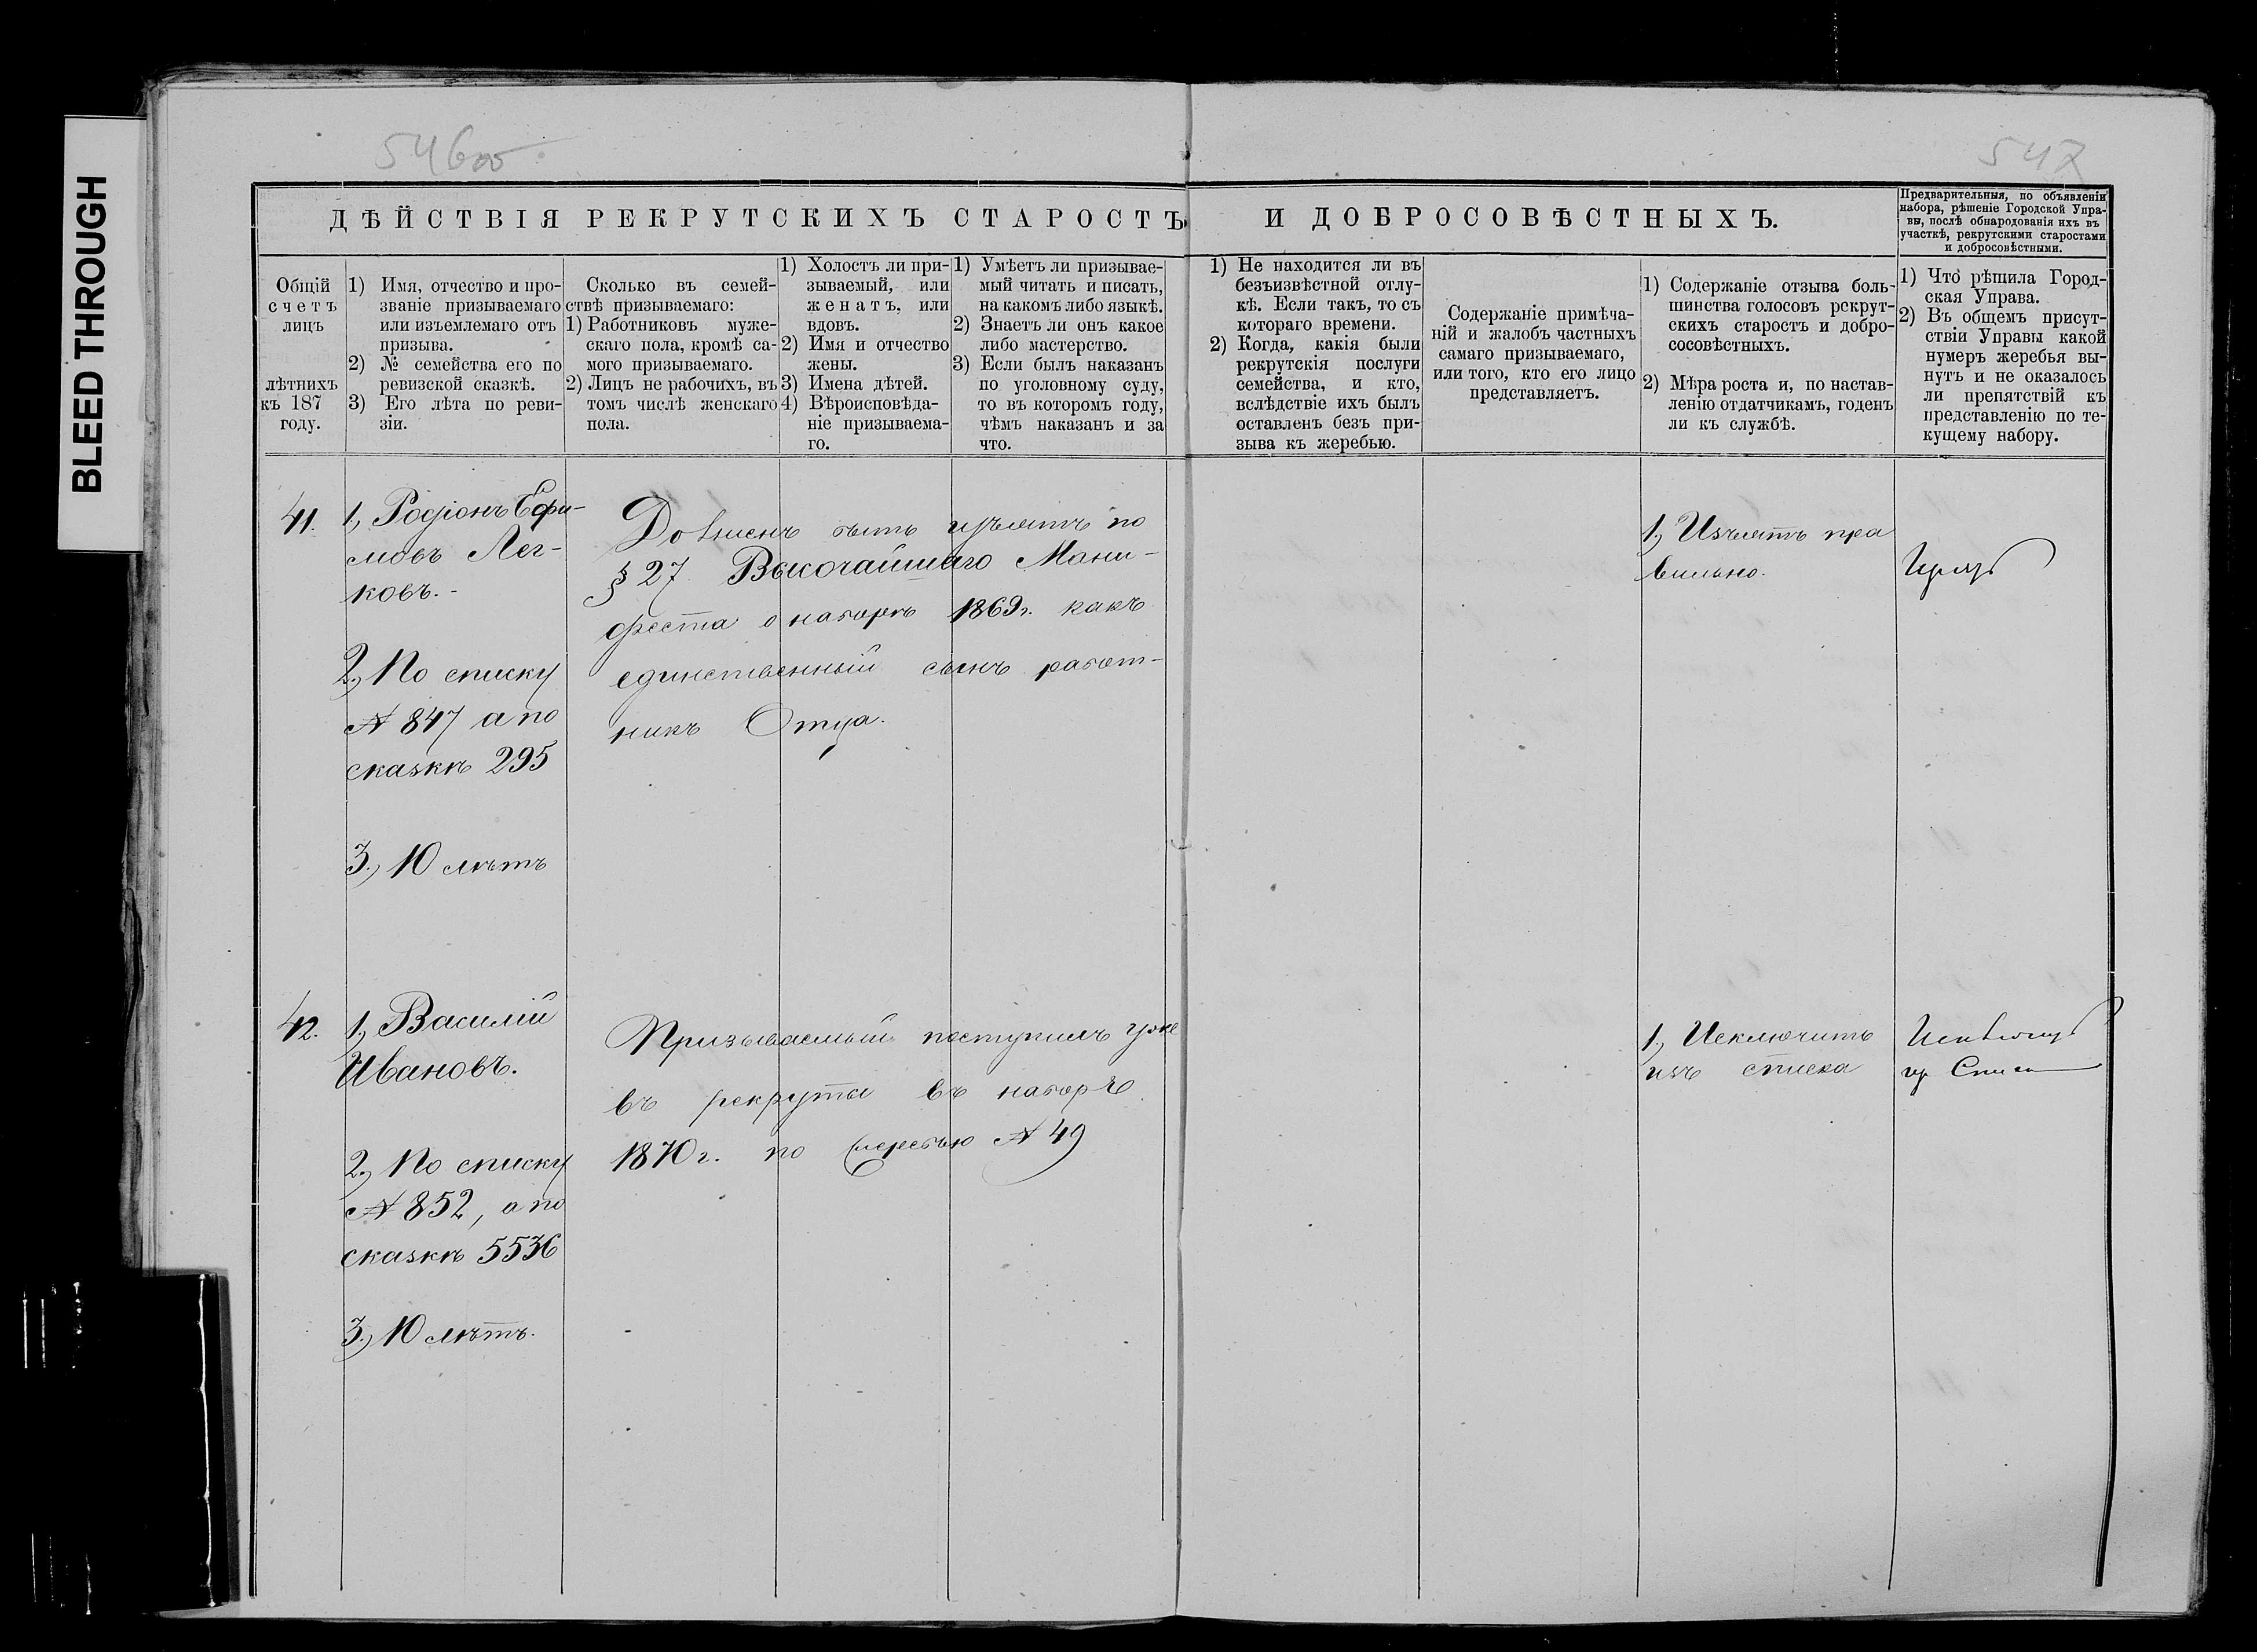 BLEED THROUGH
546об.
547
ДѢЙСТВІЯ РЕКРУТСКИХЪ СТАРОСТЪ И ДОБРОСОВѢСТНЫХЪ.
Предварительныя, по объявленіи
набора, рѣшеніе Городской Упра-
вы, послѣ обнародованія ихъ въ
участкѣ, рекрутскими старостами
и добросовѣстными.
Общій
счетъ
лицъ
лѣтнихъ
къ 187
году.
1) Имя, отчество и про-
званіе призываемаго
или изъемлемаго отъ
призыва.
2) № семейства его по
ревизской сказкѣ.
3) Его лѣта по реви-
зіи.
Сколько въ семей-
ствѣ призываемаго:
1) Работниковъ муже-
скаго пола, кромѣ са-
мого призываемаго.
2) Лицъ не рабочихъ, въ
томъ числѣ женскаго
пола.
1) Холостъ ли при-
зываемый, или
женатъ, или
вдовъ.
2) Имя и отчество
жены.
3) Имена дѣтей.
4) Вѣроисповѣда-
ніе призываема-
го.
1) Умѣетъ ли призывае-
мый читать и писать,
на какомъ либо языкѣ.
2) Знаетъ ли онъ какое
либо мастерство.
3) Если былъ наказанъ
по уголовному суду,
то въ которомъ году,
чѣмъ наказанъ и за
что.
1) Не находится ли въ
безъизвѣстной отлу-
кѣ. Если такъ, то съ
котораго времени.
2) Когда, какія были
рекрутскія послуги
семейства, и кто,
вслѣдствіе ихъ былъ
оставленъ безъ при-
зыва къ жеребью.
Содержаніе примѣча-
ній и жалобъ частныхъ
самаго призываемаго,
или того, кто его лицо
представляетъ.
1) Содержаніе отзыва боль-
шинства голосовъ рекрут-
скихъ старостъ и добро-
сосовѣстныхъ.
2) Мѣра роста и, по настав-
ленію отдатчикамъ, годенъ
ли къ службѣ.
1) Что рѣшила Город-
ская Управа.
2) Въ общемъ присут-
ствіи Управы какой
нумеръ жеребья вы-
нутъ и не оказалось
ли препятствій къ
представленію по те-
кущему набору.
41.
1, Родіонъ Ефи-
мовъ Лег-
ковъ.-
2, По списку
№ 847 а по
сказкѣ 295
3, 10 лѣтъ
Долженъ быть изъятъ по
§ 27 Высочайшаго Мани-
феста о наборѣ 1869г. какъ
единственный сынъ работ-
никъ Отца.
1, Изъятъ пра
вильно.
42.
1, Василій
Ивановъ.
2, По списку
№ 852, а по
сказкѣ 5536
3, 10 лѣтъ.
Призываемый поступилъ уже
въ рекруты въ наборѣ
1870г. по жеребью № 49
1, Исключить
изъ списка